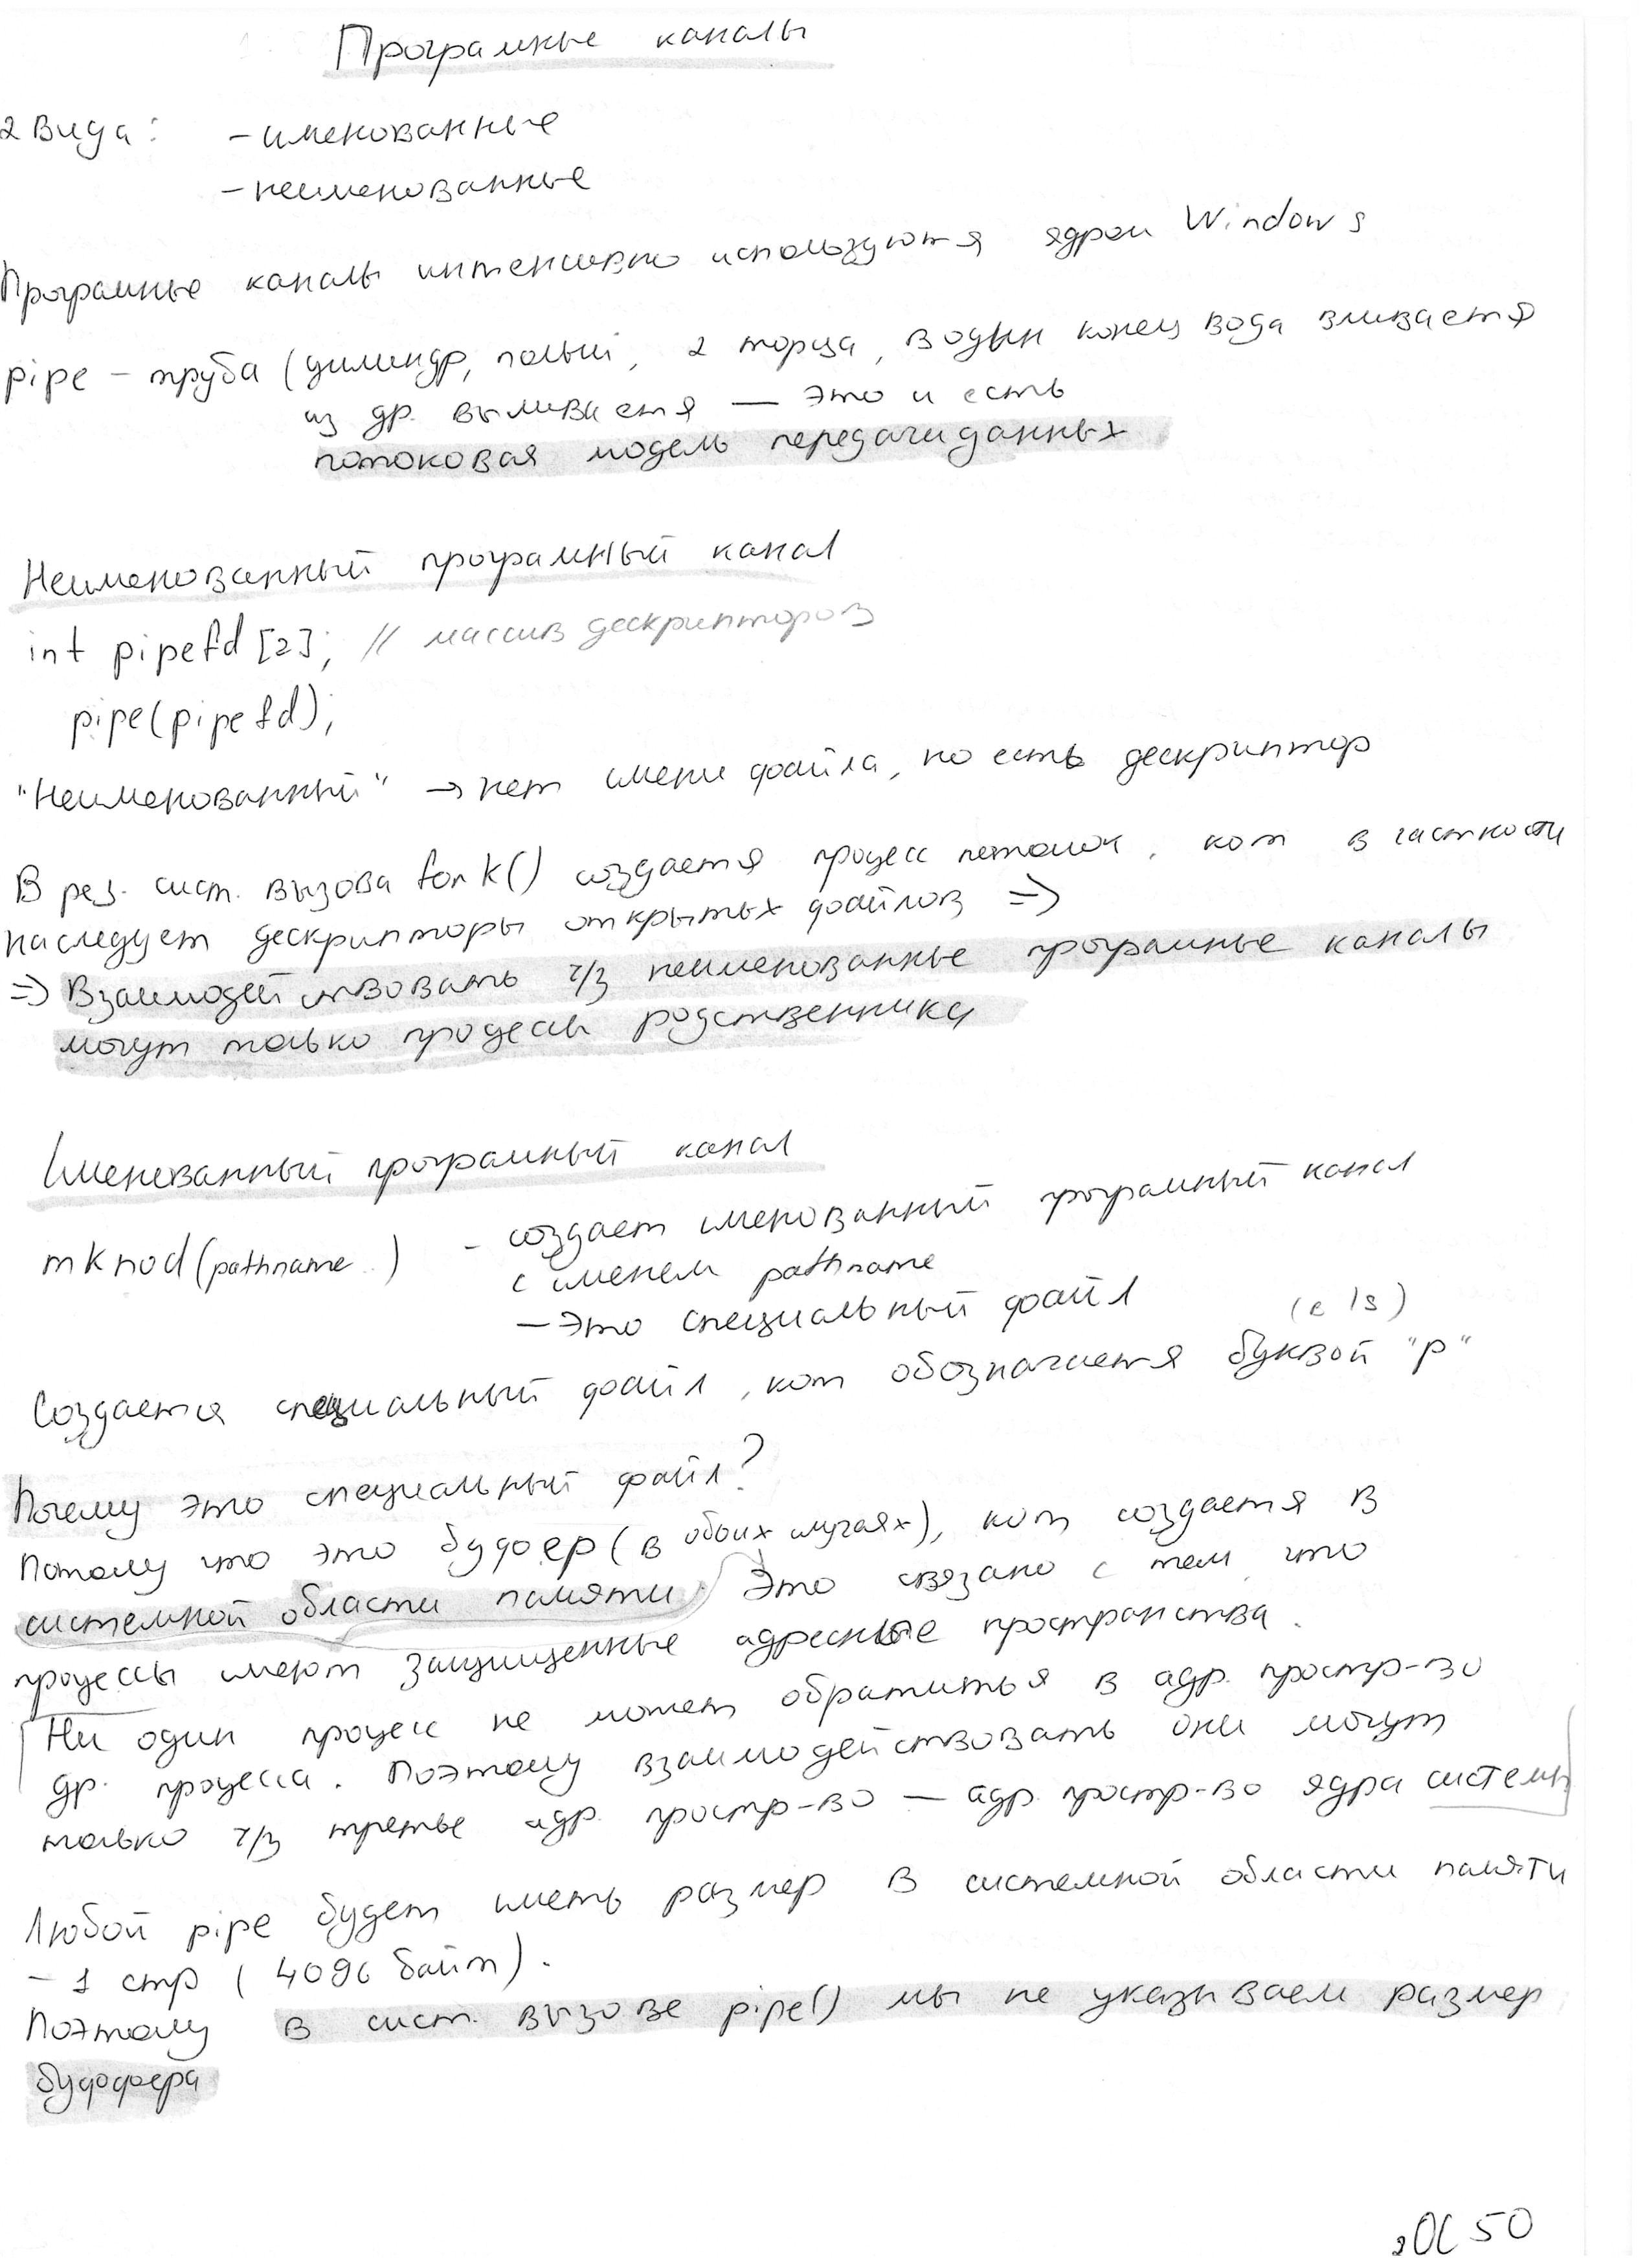 Програмные каналы
2 вида: - именованные
- неименованные
Програмные каналы интенсивно используются ядром Windows
pipe - труба (цилиндр, полый, 2 торца, в один конец вода вливается
из др. выливается — это и есть
потоковая модель передачи данных
Неименованный програмный канал
int pipefd[2]; // массив дескрипторов
pipe(pipefd);
"Неименованный" → нет имени файла, но есть дескриптор
В рез. сист. вызова fork() создается процесс потомок, кот в частности
наследует дескрипторы открытых файлов =>
=> Взаимодействовать ч/з неименованные програмные каналы
могут только процессы родственники
Именованный програмный канал
mknod(pathname..) - создает именованный програмный канал
с именем pathname
— это специальный файл
(в ls)
Создается специальный файл, кот обозначается буквой "p"
Почему это специальный файл?
Потому что это буфер (в обоих случаях), кот создается в
системной области памяти. Это связано с тем, что
процессы имеют защищенные адресные пространства.
Ни один процесс не может обратиться в адр. простр-во
др. процесса. Поэтому взаимодействовать они могут
только ч/з третье адр. простр-во — адр. простр-во ядра системы
Любой pipe будет иметь размер в системной области памяти
- 1 стр (4096 байт).
Поэтому в сист. вызове pipe() мы не указываем размер
буффера
2ОС 50